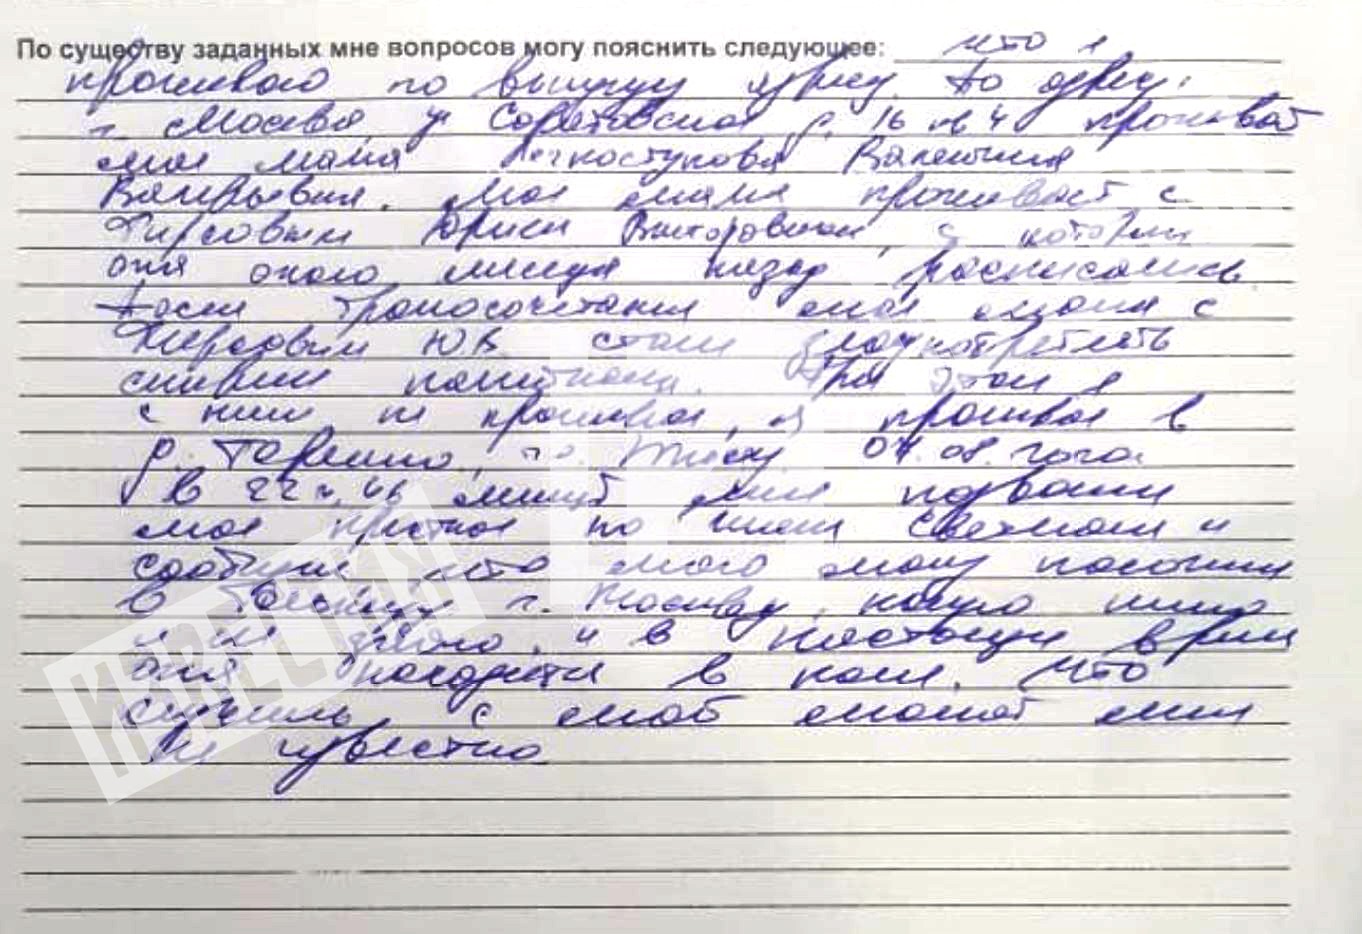 По существу заданных мне вопросов могу пояснить следующее: что я
проживаю по выше адресу. По адресу:
г. Москва, ул Саратовская д. 16 кв 4 проживает
моя мама Легкоступова Валентина
Валерьевна. Моя мама проживает с
Фирсовым Юрием Викторовичем, с которым
она около месяца назад расписались.
После бракосочетания моя мама с
Фирсовым Ю.В. стали злоупотреблять
спиртными напитками. При этом я
с ними не проживаю, а проживаю в
08. года
в 22 ч, 46 минут мне позвонили
моя крестная по имени Светлана и
сообщили, что мою маму положили
в больницу г. Москвы, какую именно
я не знаю, и в настоящее время
она находится в коме. Что
случилось с моей мамой мне
не известно
ИЗВЕСТИЯ